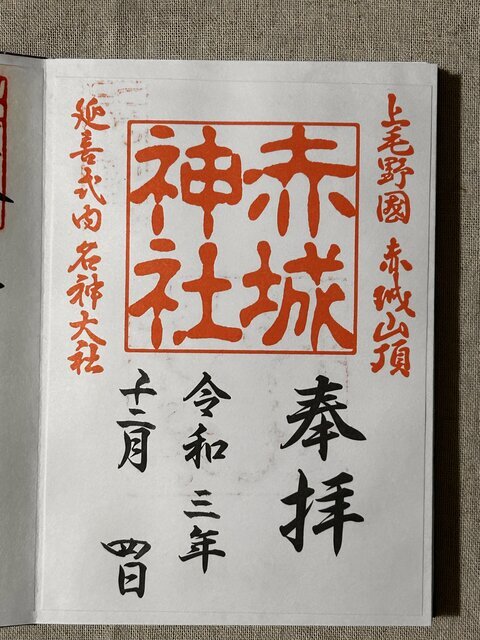 上毛野國 赤城山頂
赤城
神社
延喜式内 名神大社
奉拝
令和 三年
十二月 四日